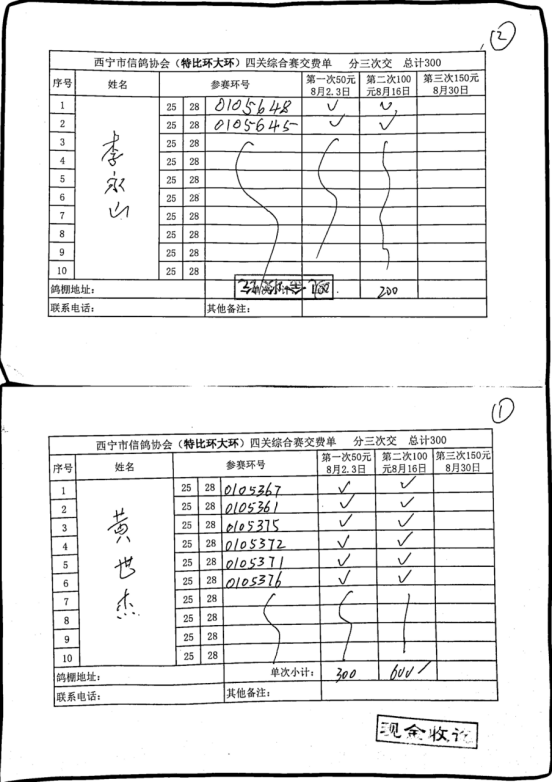 ②
西宁市信鸽协会（特比环大环）四关综合赛交费单 分三次交 总计300
序号 姓名 参赛环号 第一次50元 8月2.3日 第二次100元8月16日 第三次150元 8月30日
李永山
1 25 28 0105648 ✓ ✓
2 25 28 0105645 ✓ ✓
3 25 28
4 25 28
5 25 28
6 25 28
7 25 28
8 25 28
9 25 28
10 25 28
鸽棚地址： 200
联系电话： 其他备注：
①
西宁市信鸽协会（特比环大环）四关综合赛交费单 分三次交 总计300
序号 姓名 参赛环号 第一次50元 8月2.3日 第二次100元8月16日 第三次150元 8月30日
黄世杰
1 25 28 0105367 ✓ ✓
2 25 28 0105361 ✓ ✓
3 25 28 0105375 ✓ ✓
4 25 28 0105372 ✓ ✓
5 25 28 0105371 ✓ ✓
6 25 28 0105376 ✓ ✓
7 25 28
8 25 28
9 25 28
10 25 28
鸽棚地址： 单次小计： 300 600
联系电话： 其他备注：
现金收讫